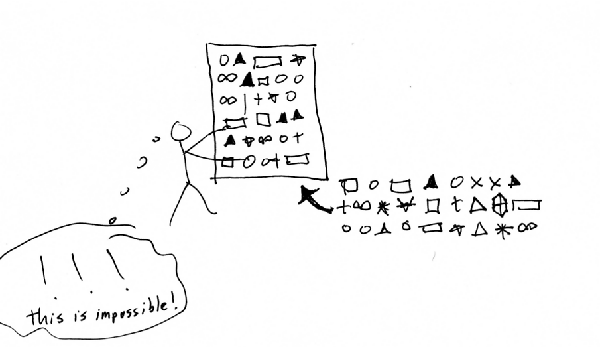 ! ! !
this is impossible!